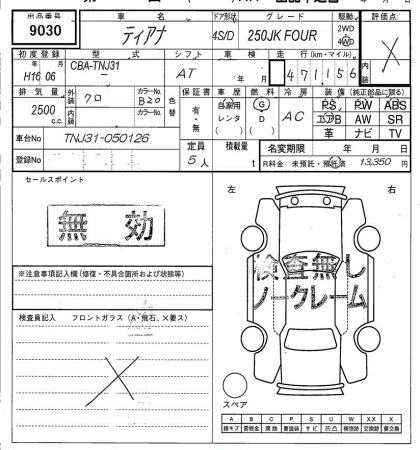 出品番号 車名 ドア形状 グレード 駆動 評価点
9030 ティアナ 4S/D 250JK FOUR 2WD 4WD ×
初度登録 型式 シフト 車検 走行(km・マイル)
H16年 06月 CBA-TNJ31 AT 年 月 471156
排気量 外装 クロ カラーNo. B20 色替 保証書 車歴 燃料 冷房 装備(純正部品に限る)
2500 c.c. 内装 カラーNo. 有・無 自家用 レンタ G D AC PS PW ABS
エアB AW SR
革 ナビ TV
車台No TNJ31-050126 定員 積載量 名変期限 年 月 日
登録No 5人 t R料金 未預託・預託済 13,350円
セールスポイント 左 右
無効
検査無し
ノークレーム
※注意事項記入欄(修復・不具合箇所および状態等)
検査員記入 フロントガラス(A・飛石、×要ス)
×
スペア
A B C P S U W X XX
線キズ 要鈑金 腐蝕 要塗装 サビ 凹凸 修復跡 要交換 交換跡